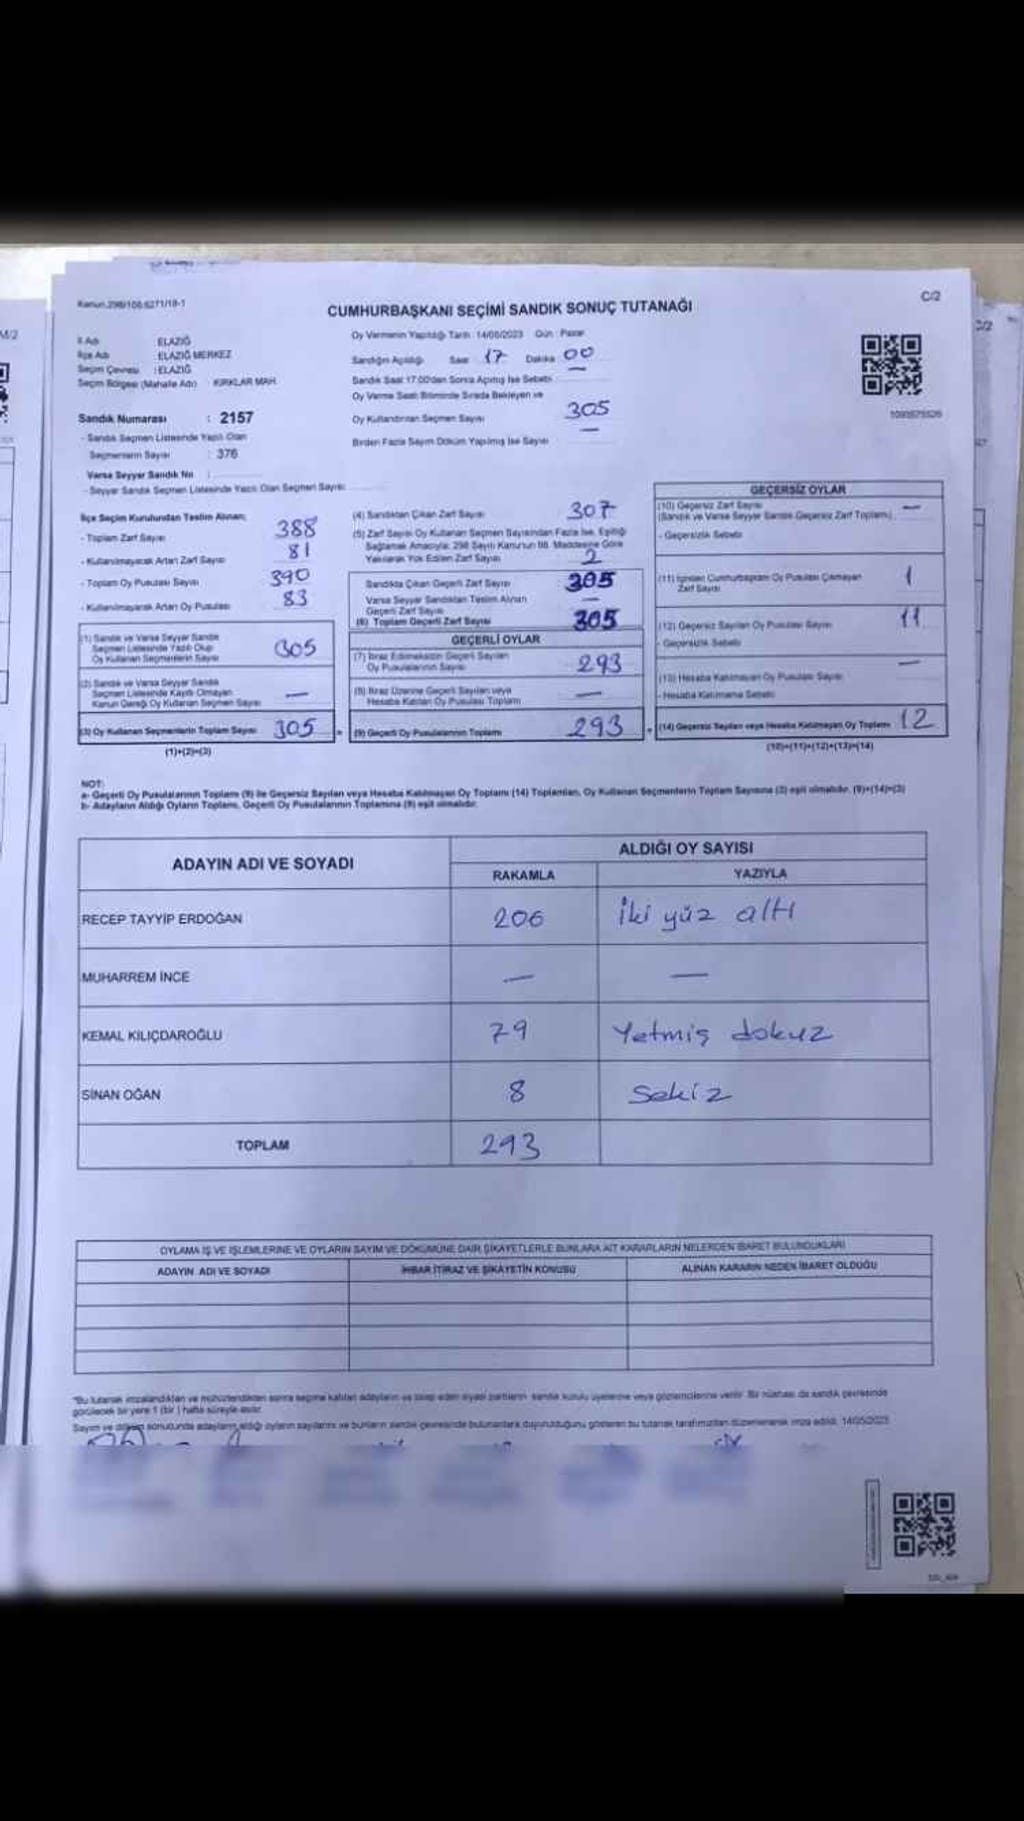 Kanun.298/106.6271/18-1
C/2
CUMHURBAŞKANI SEÇİMİ SANDIK SONUÇ TUTANAĞI
İl Adı ELAZIĞ
İlçe Adı ELAZIĞ MERKEZ
Seçim Çevresi : ELAZIĞ
Seçim Bölgesi (Mahalle Adı) KIRKLAR MAH.
Sandık Numarası : 2157
- Sandık Seçmen Listesinde Yazılı Olan
Seçmenlerin Sayısı : 376
Varsa Seyyar Sandık No :
- Seyyar Sandık Seçmen Listesinde Yazılı Olan Seçmen Sayısı:
Oy Vermenin Yapıldığı Tarih : 14/05/2023 Gün : Pazar
Sandığın Açıldığı Saat 17 Dakika 00
Sandık Saat 17:00'den Sonra Açılmış İse Sebebi —
Oy Verme Saati Bitiminde Sırada Bekleyen ve
Oy Kullandırılan Seçmen Sayısı 305
Birden Fazla Sayım Döküm Yapılmış İse Sayısı —
1093575526
İlçe Seçim Kurulundan Teslim Alınan;
- Toplam Zarf Sayısı 388
- Kullanılmayarak Artan Zarf Sayısı 81
- Toplam Oy Pusulası Sayısı 390
- Kullanılmayarak Artan Oy Pusulası 83
(1) Sandık ve Varsa Seyyar Sandık
Seçmen Listesinde Yazılı Olup
Oy Kullanan Seçmenlerin Sayısı 305
(2) Sandık ve Varsa Seyyar Sandık
Seçmen Listesinde Kayıtlı Olmayan
Kanun Gereği Oy Kullanan Seçmen Sayısı —
(3) Oy Kullanan Seçmenlerin Toplam Sayısı 305 =
(1)+(2)=(3)
(4) Sandıktan Çıkan Zarf Sayısı 307
(5) Zarf Sayısı Oy Kullanan Seçmen Sayısından Fazla İse, Eşitliği
Sağlamak Amacıyla; 298 Sayılı Kanunun 98. Maddesine Göre
Yakılarak Yok Edilen Zarf Sayısı 2
Sandıkta Çıkan Geçerli Zarf Sayısı 305
Varsa Seyyar Sandıktan Teslim Alınan
Geçerli Zarf Sayısı —
(6) Toplam Geçerli Zarf Sayısı 305
GEÇERLİ OYLAR
(7) İtiraz Edilmeksizin Geçerli Sayılan
Oy Pusulalarının Sayısı 293
(8) İtiraz Üzerine Geçerli Sayılan veya
Hesaba Katılan Oy Pusulası Toplamı —
(9) Geçerli Oy Pusulalarının Toplamı 293 +
GEÇERSİZ OYLAR
(10) Geçersiz Zarf Sayısı —
(Sandık ve Varsa Seyyar Sandık Geçersiz Zarf Toplamı)
- Geçersizlik Sebebi
(11) İçinden Cumhurbaşkanı Oy Pusulası Çıkmayan
Zarf Sayısı 1
(12) Geçersiz Sayılan Oy Pusulası Sayısı 11
- Geçersizlik Sebebi
(13) Hesaba Katılmayan Oy Pusulası Sayısı —
- Hesaba Katılmama Sebebi
(14) Geçersiz Sayılan veya Hesaba Katılmayan Oy Toplamı 12
(10)+(11)+(12)+(13)=(14)
NOT:
a- Geçerli Oy Pusulalarının Toplamı (9) ile Geçersiz Sayılan veya Hesaba Katılmayan Oy Toplamı (14) Toplamları, Oy Kullanan Seçmenlerin Toplam Sayısına (3) eşit olmalıdır. (9)+(14)=(3)
b- Adayların Aldığı Oyların Toplamı, Geçerli Oy Pusulalarının Toplamına (9) eşit olmalıdır.
ADAYIN ADI VE SOYADI
ALDIĞI OY SAYISI
RAKAMLA YAZIYLA
RECEP TAYYİP ERDOĞAN 206 İki yüz altı
MUHARREM İNCE — —
KEMAL KILIÇDAROĞLU 79 Yetmiş dokuz
SİNAN OĞAN 8 Sekiz
TOPLAM 293
OYLAMA İŞ VE İŞLEMLERİNE VE OYLARIN SAYIM VE DÖKÜMÜNE DAİR ŞİKAYETLERLE BUNLARA AİT KARARLARIN NELERDEN İBARET BULUNDUKLARI
ADAYIN ADI VE SOYADI İHBAR İTİRAZ VE ŞİKAYETİN KONUSU ALINAN KARARIN NEDEN İBARET OLDUĞU
*Bu tutanak imzalandıktan ve mühürlendikten sonra seçime katılan adayların ve talep eden siyasi partilerin sandık kurulu üyelerine veya gözlemcilerine verilir. Bir nüshası da sandık çevresinde
görülecek bir yere 1 (bir ) hafta süreyle asılır.
Sayım ve döküm sonucunda adayların aldığı oyların sayılarını ve bunların sandık çevresinde bulunanlara duyurulduğunu gösteren bu tutanak tarafımızdan düzenlenerek imza edildi. 14/05/2023